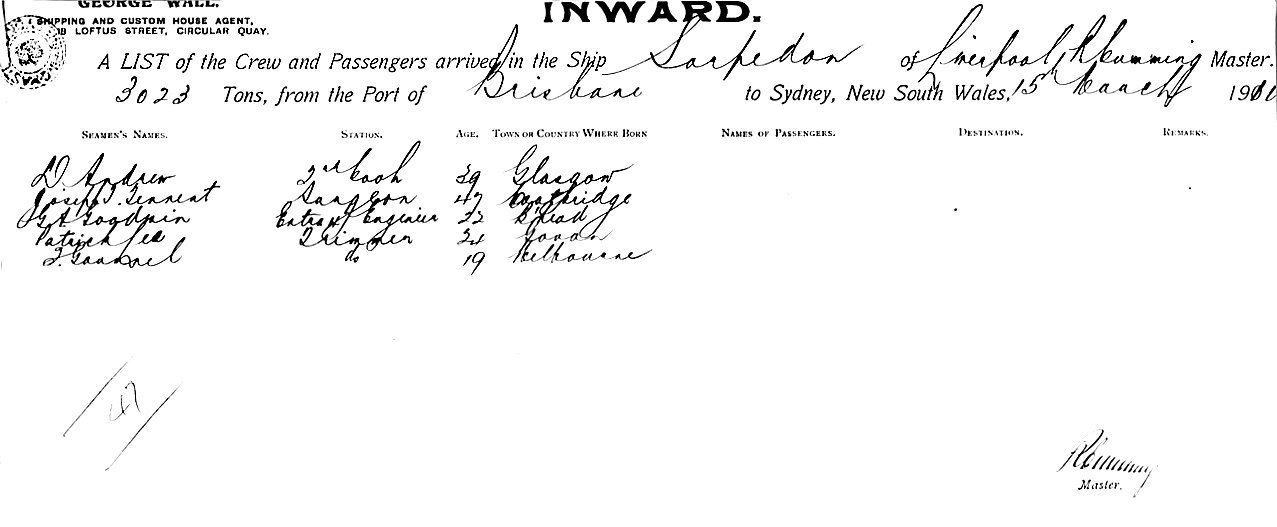 GEORGE WALL,
SHIPPING AND CUSTOM HOUSE AGENT,
LOFTUS STREET, CIRCULAR QUAY.
INWARD.
A LIST of the Crew and Passengers arrived in the Ship Sarpedon of Liverpool, R Cumming Master.
3023 Tons, from the Port of Brisbane to Sydney, New South Wales, 15th March 1910
SEAMEN'S NAMES. STATION. AGE. TOWN OR COUNTRY WHERE BORN NAMES OF PASSENGERS. DESTINATION. REMARKS.
D Andrew 2nd Cook 39 Glasgow
Joseph J. Tennent Surgeon 47 Coatbridge
G A Goodwin Extra Engineer 22 B'head
Patrick Lea Trimmer 24
do 19 Melbourne
47
R Cumming
Master.